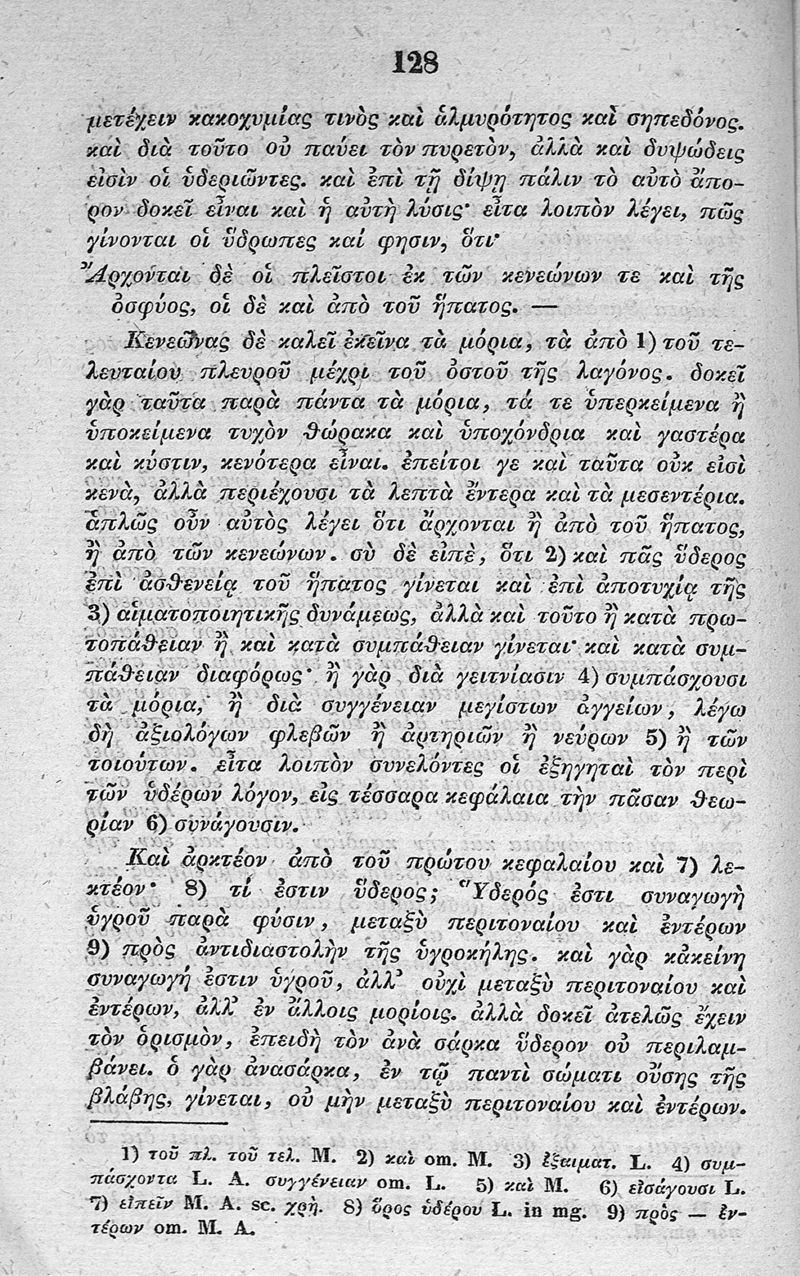 128
μετέχειν κακοχυμίας τινὸς καὶ ἁλμυρότητος καὶ σηπεδόνος.
καὶ διὰ τοῦτο οὐ παύει τὸν πυρετὸν, ἀλλὰ καὶ δυψώδεις
εἰσὶν οἱ ὑδεριῶντες. καὶ ἐπὶ τῇ δίψῃ πάλιν τὸ αὐτὸ ἄπο-
ρον δοκεῖ εἶναι καὶ ἡ αὐτὴ λύσις· εἶτα λοιπὸν λέγει, πῶς
γίνονται οἱ ὕδρωπες καί φησιν, ὅτι·
Ἄρχονται δὲ οἱ πλεῖστοι ἐκ τῶν κενεώνων τε καὶ τῆς
ὀσφύος, οἱ δὲ καὶ ἀπὸ τοῦ ἥπατος. —
Κενεῶνας δὲ καλεῖ ἐκεῖνα τὰ μόρια, τὰ ἀπὸ 1) τοῦ τε-
λευταίου πλευροῦ μέχρι τοῦ ὀστοῦ τῆς λαγόνος. δοκεῖ
γὰρ ταῦτα παρὰ πάντα τὰ μόρια, τά τε ὑπερκείμενα ἢ
ὑποκείμενα τυχὸν θώρακα καὶ ὑποχόνδρια καὶ γαστέρα
καὶ κύστιν, κενότερα εἶναι. ἐπείτοι γε καὶ ταῦτα οὐκ εἰσὶ
κενὰ, ἀλλὰ περιέχουσι τὰ λεπτὰ ἔντερα καὶ τὰ μεσεντέρια.
ἁπλῶς οὖν αὐτὸς λέγει ὅτι ἄρχονται ἢ ἀπὸ τοῦ ἥπατος,
ἢ ἀπὸ τῶν κενεώνων. σὺ δὲ εἰπὲ, ὅτι 2) καὶ πᾶς ὕδερος
ἐπὶ ἀσθενείᾳ τοῦ ἥπατος γίνεται καὶ ἐπὶ ἀποτυχίᾳ τῆς
3) αἱματοποιητικῆς δυνάμεως, ἀλλὰ καὶ τοῦτο ἢ κατὰ πρω-
τοπάθειαν ἢ καὶ κατὰ συμπάθειαν γίνεται· καὶ κατὰ συμ-
πάθειαν διαφόρως· ἢ γὰρ διὰ γειτνίασιν 4) συμπάσχουσι
τὰ μόρια, ἢ διὰ συγγένειαν μεγίστων ἀγγείων, λέγω
δὴ ἀξιολόγων φλεβῶν ἢ ἀρτηριῶν ἢ νεύρων 5) ἢ τῶν
τοιούτων. εἶτα λοιπὸν συνελόντες οἱ ἐξηγηταὶ τὸν περὶ
τῶν ὑδέρων λόγον, εἰς τέσσαρα κεφάλαια τὴν πᾶσαν θεω-
ρίαν 6) συνάγουσιν.
Καὶ ἀρκτέον ἀπὸ τοῦ πρώτου κεφαλαίου καὶ 7) λε-
κτέον· 8) τί ἐστιν ὕδερος; Ὕδερός ἐστι συναγωγὴ
ὑγροῦ παρὰ φύσιν, μεταξὺ περιτοναίου καὶ ἐντέρων
9) πρὸς ἀντιδιαστολὴν τῆς ὑγροκήλης. καὶ γὰρ κἀκείνη
συναγωγή ἐστιν ὑγροῦ, ἀλλ’ οὐχὶ μεταξὺ περιτοναίου καὶ
ἐντέρων, ἀλλ’ ἐν ἄλλοις μορίοις. ἀλλὰ δοκεῖ ἀτελῶς ἔχειν
τὸν ὁρισμὸν, ἐπειδὴ τὸν ἀνὰ σάρκα ὕδερον οὐ περιλαμ-
βάνει. ὁ γὰρ ἀνασάρκα, ἐν τῷ παντὶ σώματι οὔσης τῆς
βλάβης, γίνεται, οὐ μὴν μεταξὺ περιτοναίου καὶ ἐντέρων.
1) τοῦ πλ. τοῦ τελ. M. 2) καὶ om. M. 3) ἐξαιματ. L. 4) συμ-
πάσχοντα L. A. συγγένειαν om. L. 5) καὶ M. 6) εἰσάγουσι L.
7) εἰπεῖν M. A. sc. χρὴ. 8) ὅρος ὑδέρου L. in mg. 9) πρὸς — ἐν-
τέρων om. M. A.